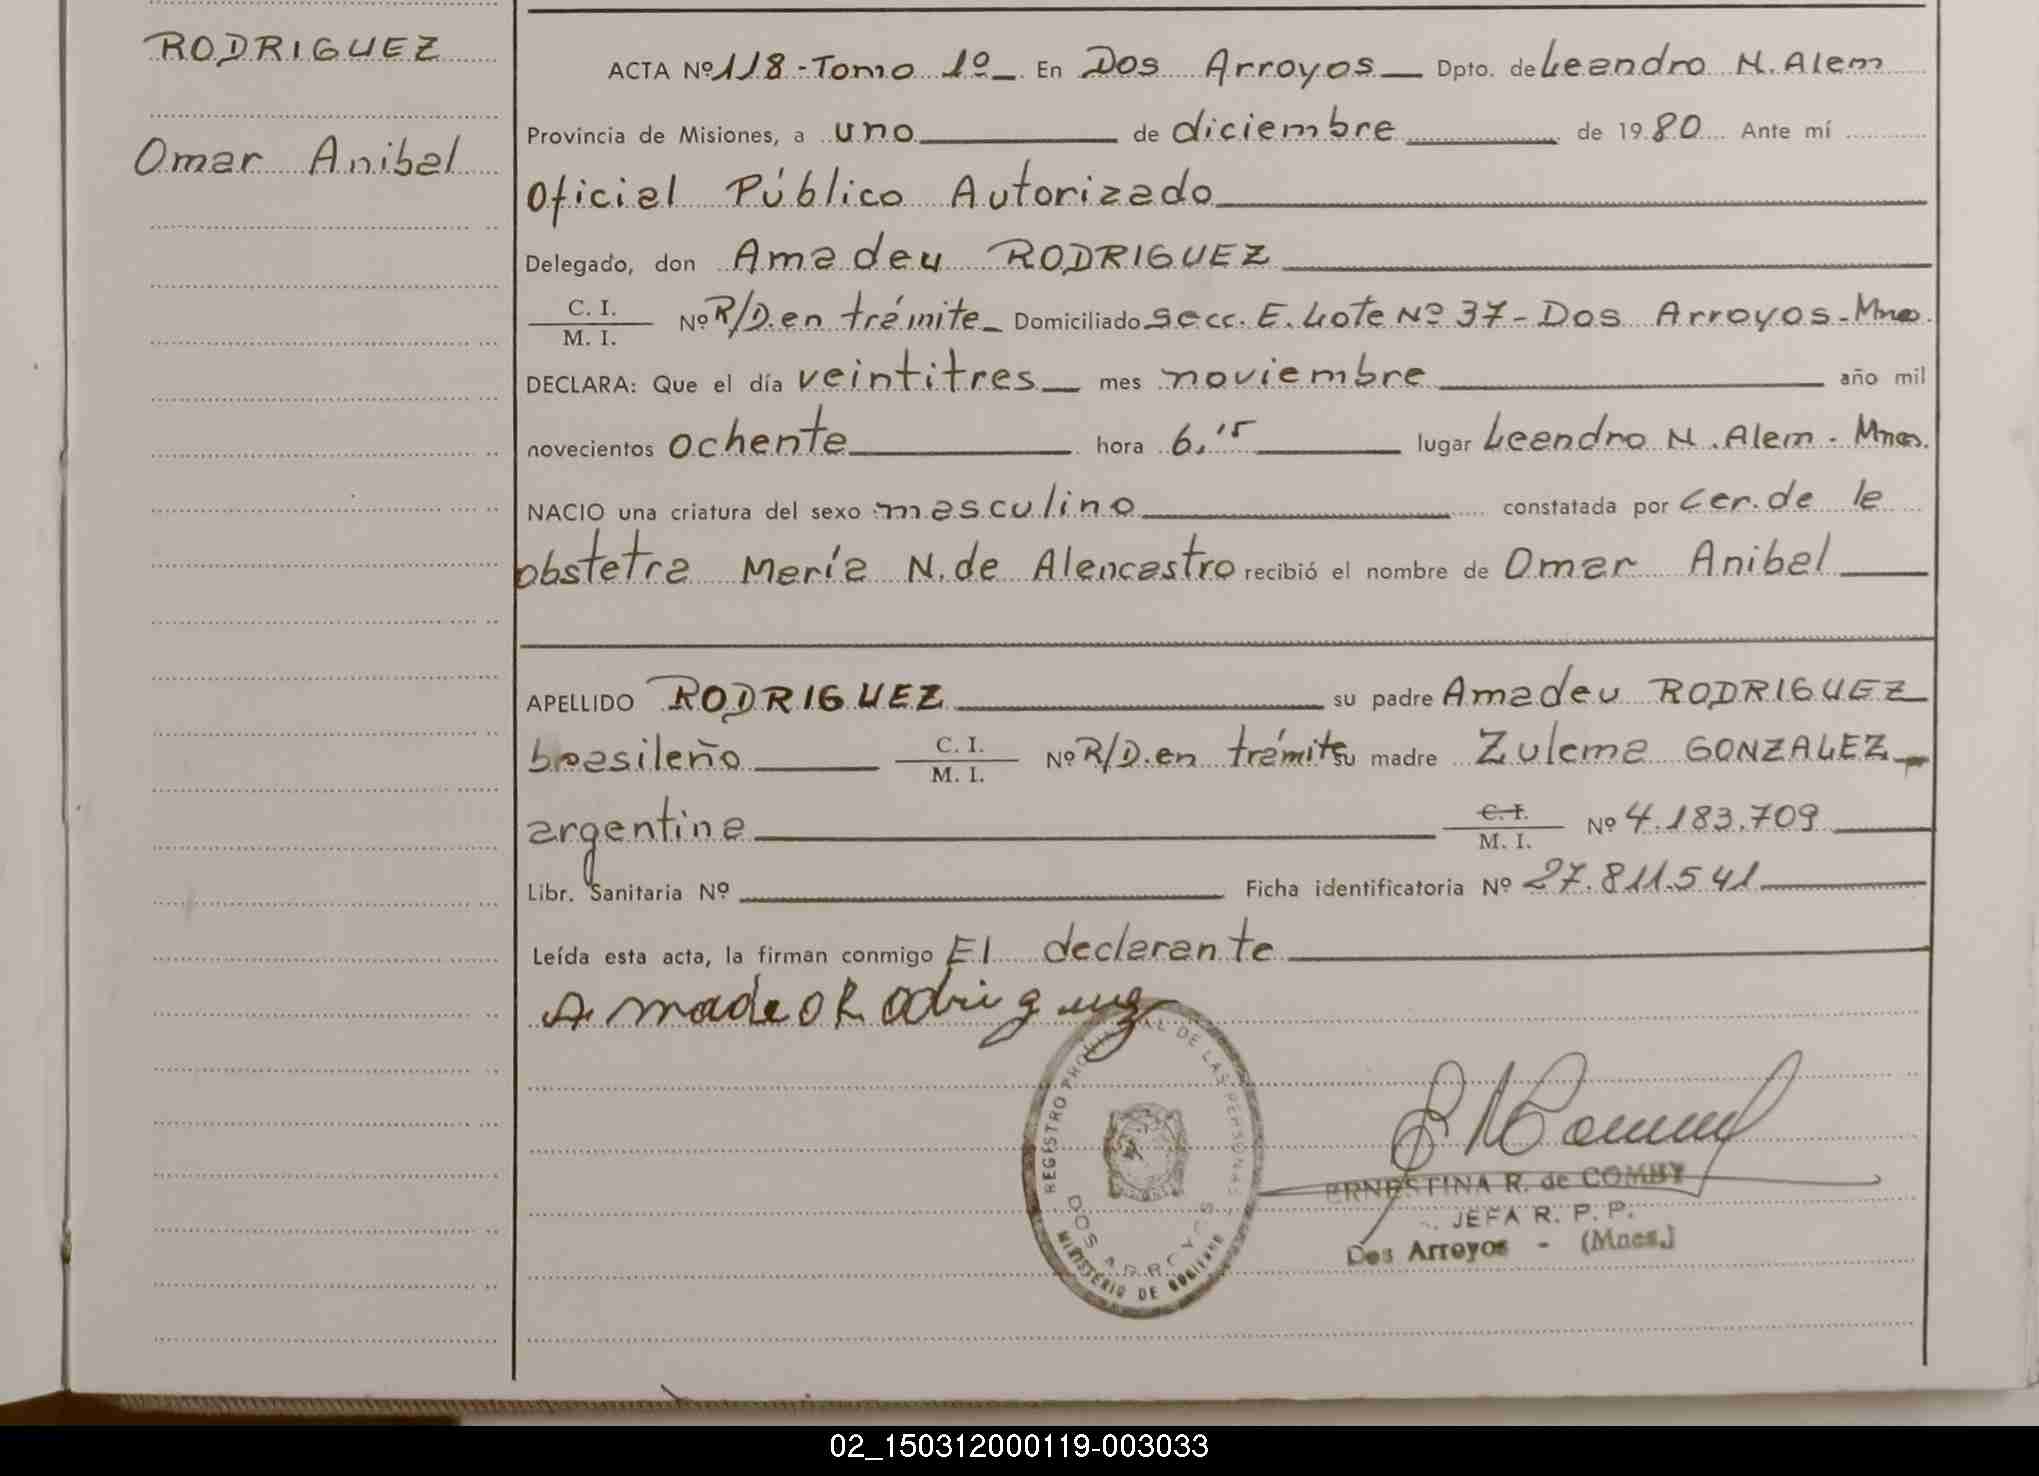 RODRIGUEZ
Omar Anibal
ACTA Nº 118 - Tomo 1º En Dos Arroyos Dpto. de Leandro N. Alem
Provincia de Misiones, a uno de diciembre de 1980 Ante mí
Oficial Público Autorizado
Delegado, don Amadeu RODRIGUEZ
C. I.
M. I. Nº R/D. en trámite Domiciliado Secc. E. Lote Nº 37 - Dos Arroyos - Mnes.
DECLARA: Que el día veintitres mes noviembre año mil
novecientos ochenta hora 6,15 lugar Leandro N. Alem - Mnes.
NACIO una criatura del sexo masculino constatada por Cer. de la
obstetra María N. de Alencastro recibió el nombre de Omar Anibal
APELLIDO RODRIGUEZ su padre Amadeu RODRIGUEZ
brasileño C. I. M. I. Nº R/D. en trámite su madre Zulema GONZALEZ
argentina C. I. M. I. Nº 4.183.709
Libr. Sanitaria Nº Ficha identificatoria Nº 27.811.541
Leída esta acta, la firman conmigo El declarante
Amadeo Rodriguez
REGISTRO PROVINCIAL DE LAS PERSONAS
DOS ARROYOS
MINISTERIO DE GOBIERNO
ERNESTINA R. de COMBY
JEFA R. P. P.
Dos Arroyos - (Mnes.)
02_150312000119-003033